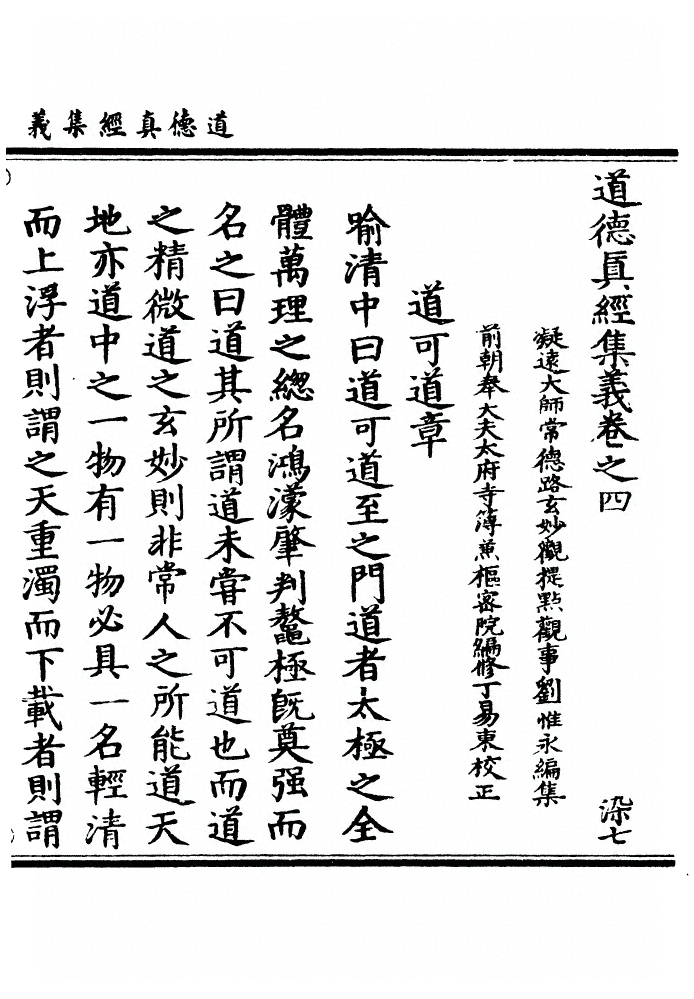 道德真經集義
道德眞經集義卷之四
染七
凝遠大師常德路玄妙觀提點觀事劉惟永編集
前朝奉大夫太府寺簿兼樞密院編修丁易東校正
道可道章
喻清中曰道可道至之門道者太極之全
體萬理之總名鴻濛肇判鼇極既奠强而
名之曰道其所謂道未甞不可道也而道
之精微道之玄妙則非常人之所能道天
地亦道中之一物有一物必具一名輕清
而上浮者則謂之天重濁而下載者則謂